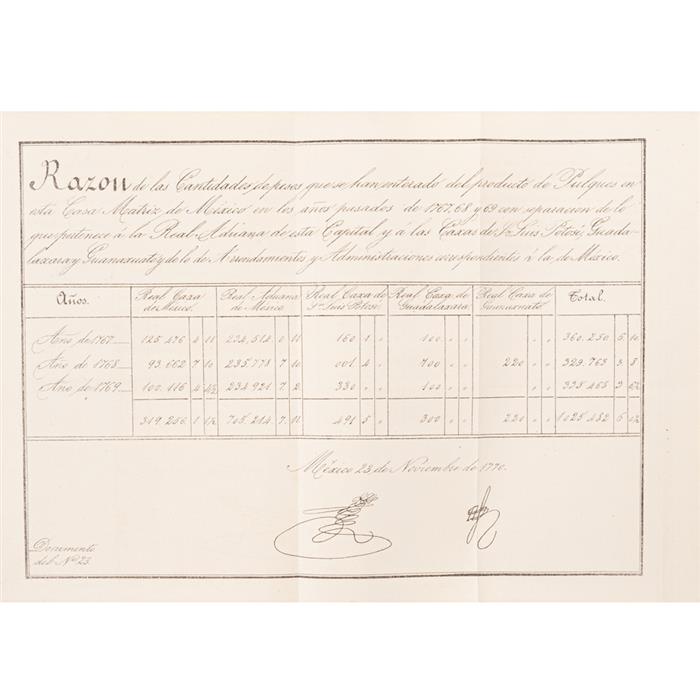 Razon de las Cantidades de pesos que se han enterado del producto de Pulques en
esta Casa Matriz de México en los años pasados de 1767, 68 y 69 con separacion de lo
que pertenece á la Real Adriana de esta Capital y a las Caxas de Sn Luis Potosi, Guada-
laxara y Guanaxuato y de lo de Arrendamientos y Administraciones correspondientes á la de México.
Años. Real Caxa de México. Real Aduana de México Real Caxa de Sn Luis Potosi Real Caxa de Guadalaxara Real Caxa de Guanaxuato Total.
Año de 1767 125.476 4 11 234.514 0 11 160 1 " 100 " " " " 360.250 5 10
Año de 1768 93.662 7 10 235.778 7 10 001 4 " 700 " " 220 " " 329.763 3 8
Año de 1769 100.116 4 4½ 234.921 7 2 330 " " 100 " " " " 335.468 3 6½
319.256 1 1½ 705.214 7 11 491 5 " 300 " " 220 " " 1025.482 6 0½
México 23, de Noviembre de 1770.
Documento
del No 23.